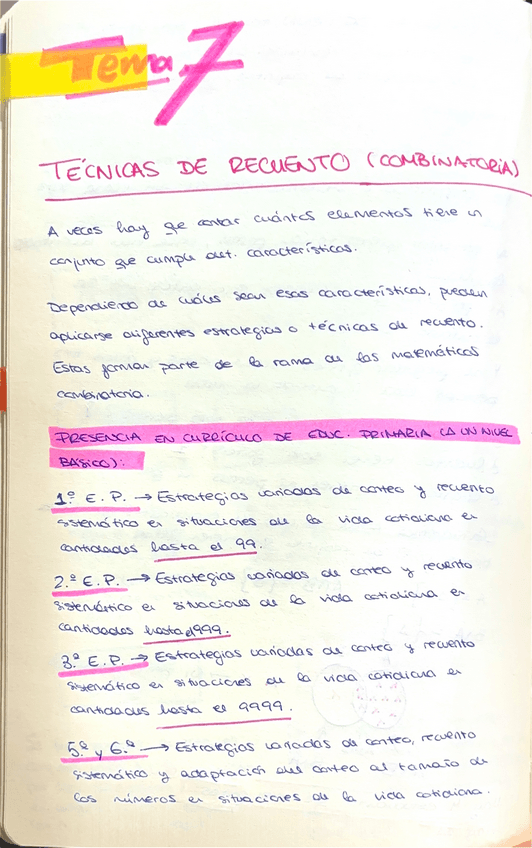 Tema 7
TÉCNICAS DE RECUENTO (COMBINATORIA)
A veces hay qe contar cuántos elementos tiene un
conjunto que cumple det. características.
Dependiendo de cuáles sean esas características, pueden
aplicarse diferentes estrategias o técnicas de recuento.
Estas forman parte de la rama de las matemáticas
combinatoria.
PRESENCIA EN CURRÍCULO DE EDUC. PRIMARIA (A UN NIVEL
BÁSICO):
1º E.P. → Estrategias variadas de conteo y recuento
sistemático en situaciones de la vida cotidiana en
cantidades hasta el 99.
2.º E.P. → Estrategias variadas de conteo y recuento
sistemático en situaciones de la vida cotidiana en
cantidades hasta el 999.
3.º E.P. → Estrategias variadas de conteo y recuento
sistemático en situaciones de la vida cotidiana en
cantidades hasta el 9999.
5.º y 6.º → Estrategias variadas de conteo, recuento
sistemático y adaptación del conteo al tamaño de
los números en situaciones de la vida cotidiana.